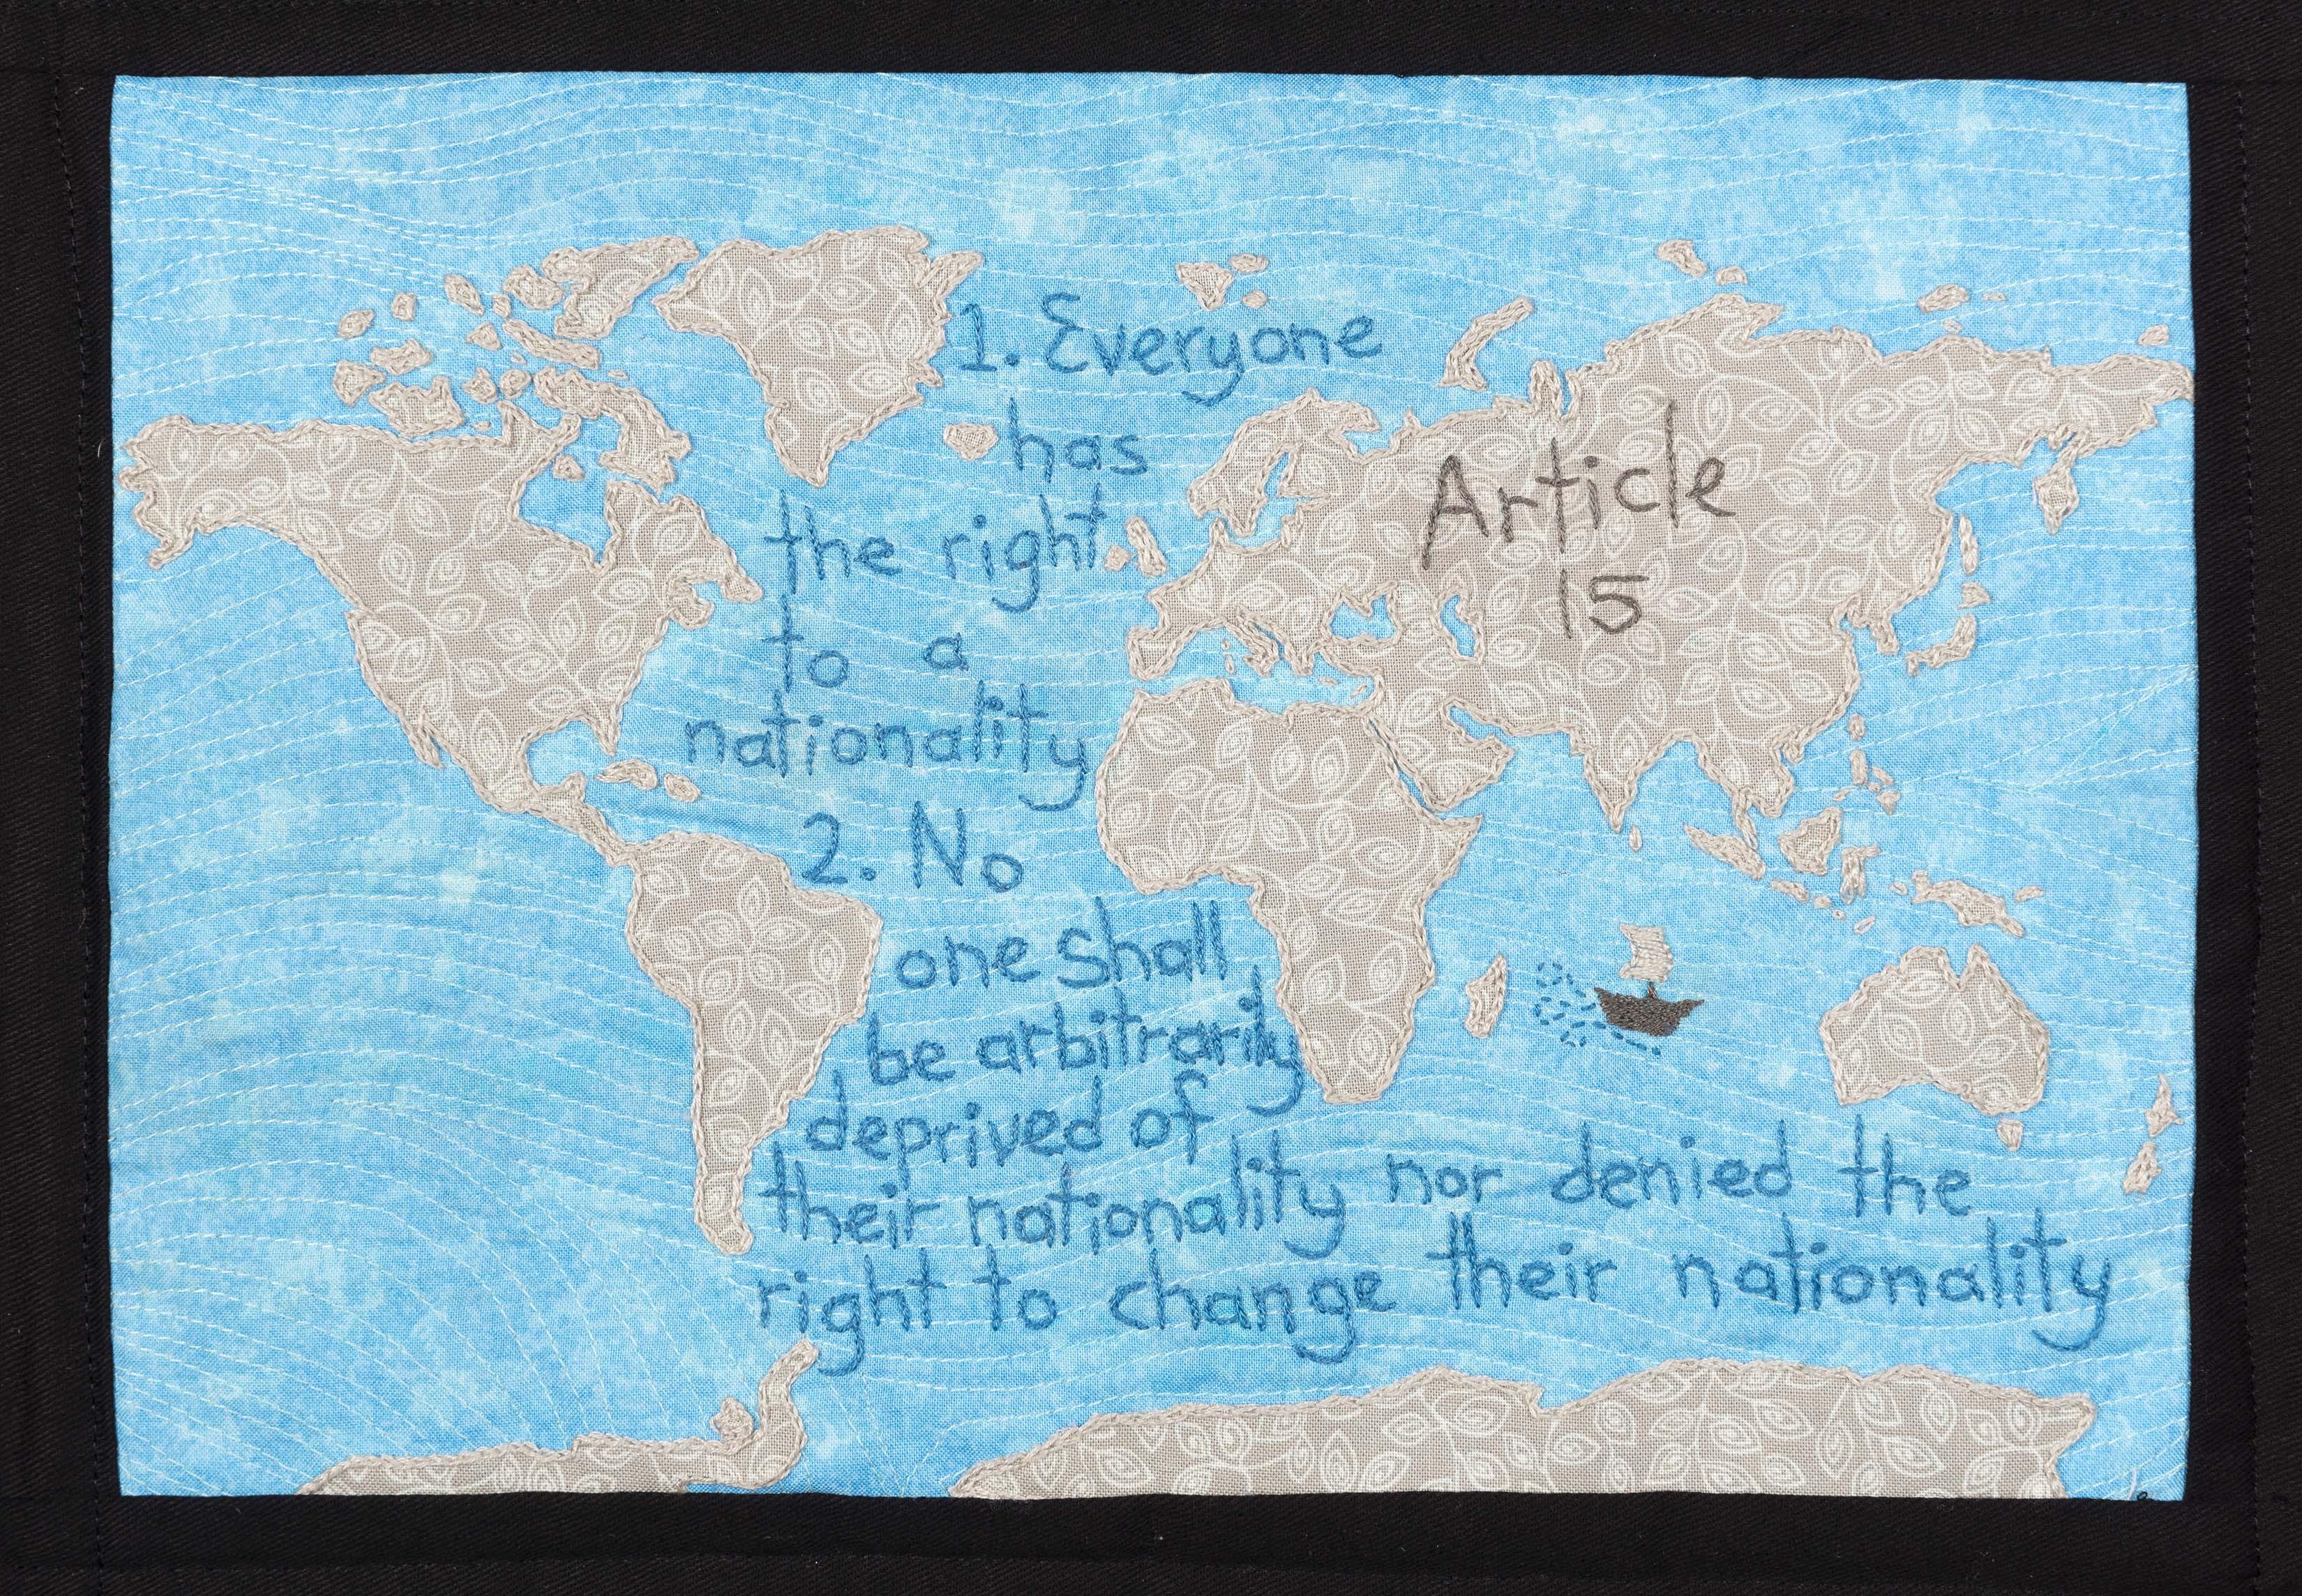 1. Everyone
has
the right
to a
nationality
2. No
one shall
be arbitrarily
deprived of
their nationality nor denied the
right to change their nationality
Article
15